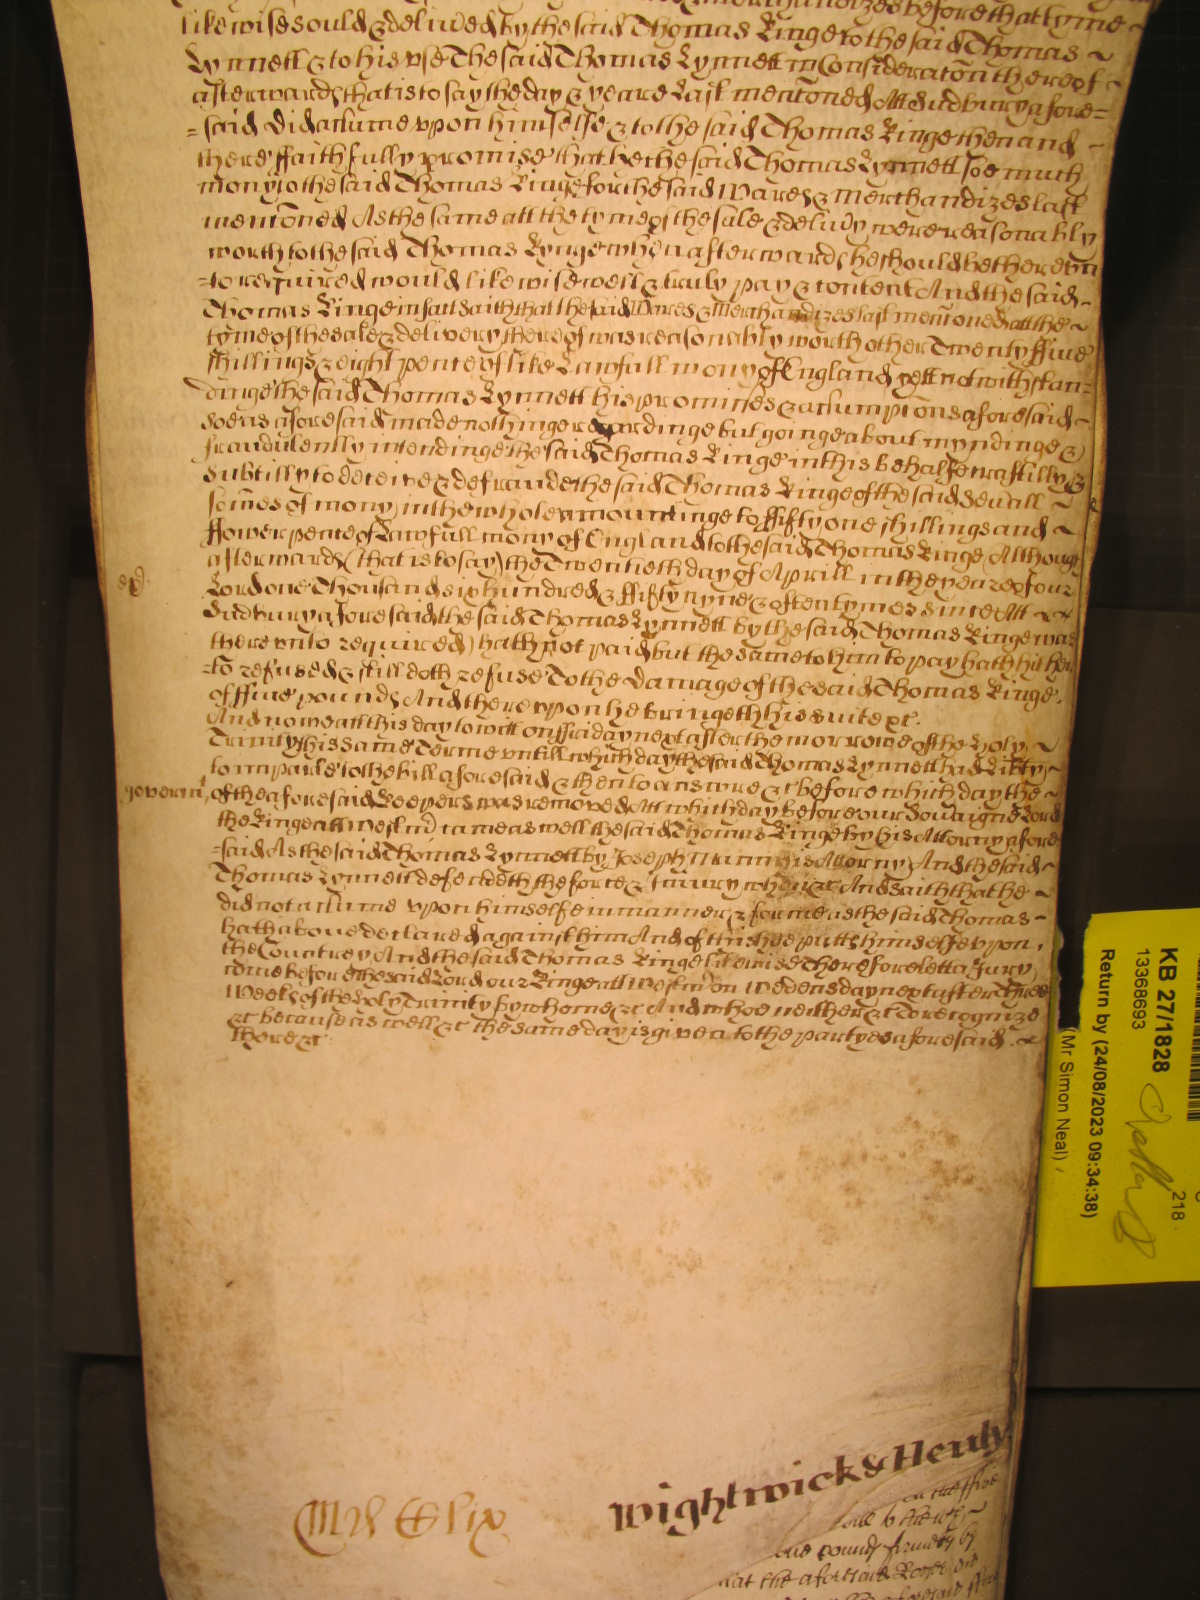 likewise sould & delived by the said Thomas Kinge to the said Thomas ~
Lynnett & to his vse The said Thomas Lynnett in Consideracon thereof ~
afterwards that is to say the day & yeare Last menconed Att Sudbury afore=
=said Did assume vpon himselfe & to the said Thomas Kinge then and ~
there ffaithfully promise that he the said Thomas Lynnett soe much
mony to the said Thomas Kinge for the said Wares & Merchandizes last
menconed As the same att the tyme of the sale & delivy were reasonably
worth to the said Thomas Kynge when afterwards he should be therevn
=to required would likewise well & truly pay & content And the said ~
Thomas Kinge in fact saith that the said Wares & Merchandizes last menconed att the ~
tyme of the sale & delivery thereof was reasonably worth other Twenty ffive
shillings & eight pence of like Lawfull mony of England yett notwithstan=
dinge the said Thomas Lynnett his promises & assumpcons aforesaid ~
soe as aforesaid made nothinge regardinge but goinge about myndinge &
fraudulently intendinge the said Thomas Kinge in this behalfe craftilly &
subtilly to deceive & defraude the said Thomas Kinge of the said sevall ~
somes of mony in the whole amountinge to ffifty one shillings and ~
ffower pence of Lawfull mony of England to the said Thomas Kinge Although
afterwards (that is to say) the Twentieth day of Aprill in the yeare of our
Lord one Thousand six hundred & ffifty nyne & often tymes since Att ~
Sudbury aforesaid the said Thomas Lynnett by the said Thomas Kinge was
therevnto required) hath not paid but the same to him to pay hath hither
=to refused & still doth refuse To the Damage of the said Thomas Kinge
of ffive pounds And therevpon he bringeth his suite &c.
And nowe att this day to witt on ffriday next after the morrowe of the Holy ~
Trinity this same Terme vntill which day the said Thomas Lynnett had Liberty ~
to imparle to the bill aforesaid & then to answere &c before which day the ~
of the aforesaid Keepers was removed Att which day before our Sovaigne Lord
the Kinge att Westm came as well the said Thomas Kinge by his Attorny afore
=said As the said Thomas Lynnett by Joseph Mann his Attorny And the said ~
Thomas Lynnett defendeth the force & Iniury when &c And saith that he ~
did not assume vpon himselfe in manner & forme as the said Thomas ~
hath aboue declared against him And of this hee putts himselfe vpon
the Countrey And the said Thomas Kinge likewise Therefore lett a Jury
come before the said Lord our Kinge att Westm on Wedensday next after Three
Weeks of the holy Trinity by whome &c And whoe neither &c To recognize
&c because as well &c the same day is given to the partyes aforesaid ~
there &c
Wightwick & Henly
KB 27/1828
13368693
Return by (24/08/2023 09:34:38)
(Mr Simon Neal)
218